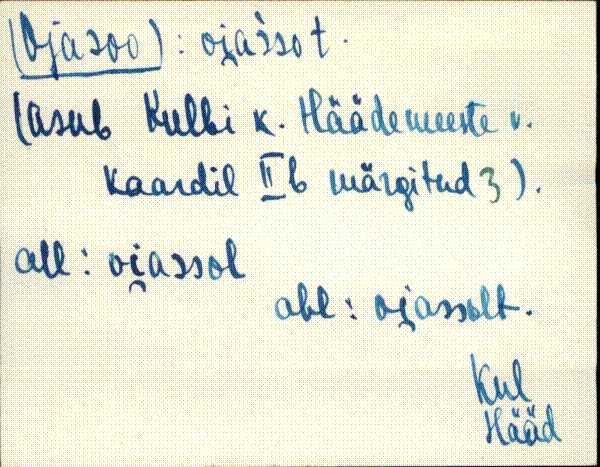 (Ojasoo): oi̯a'ssot.
(asub Kulli k. Häädemeeste v.
kaardil IIb märgitud 3).
all: oi̯assol
abl: oi̯assolt.
Kul
Hääd